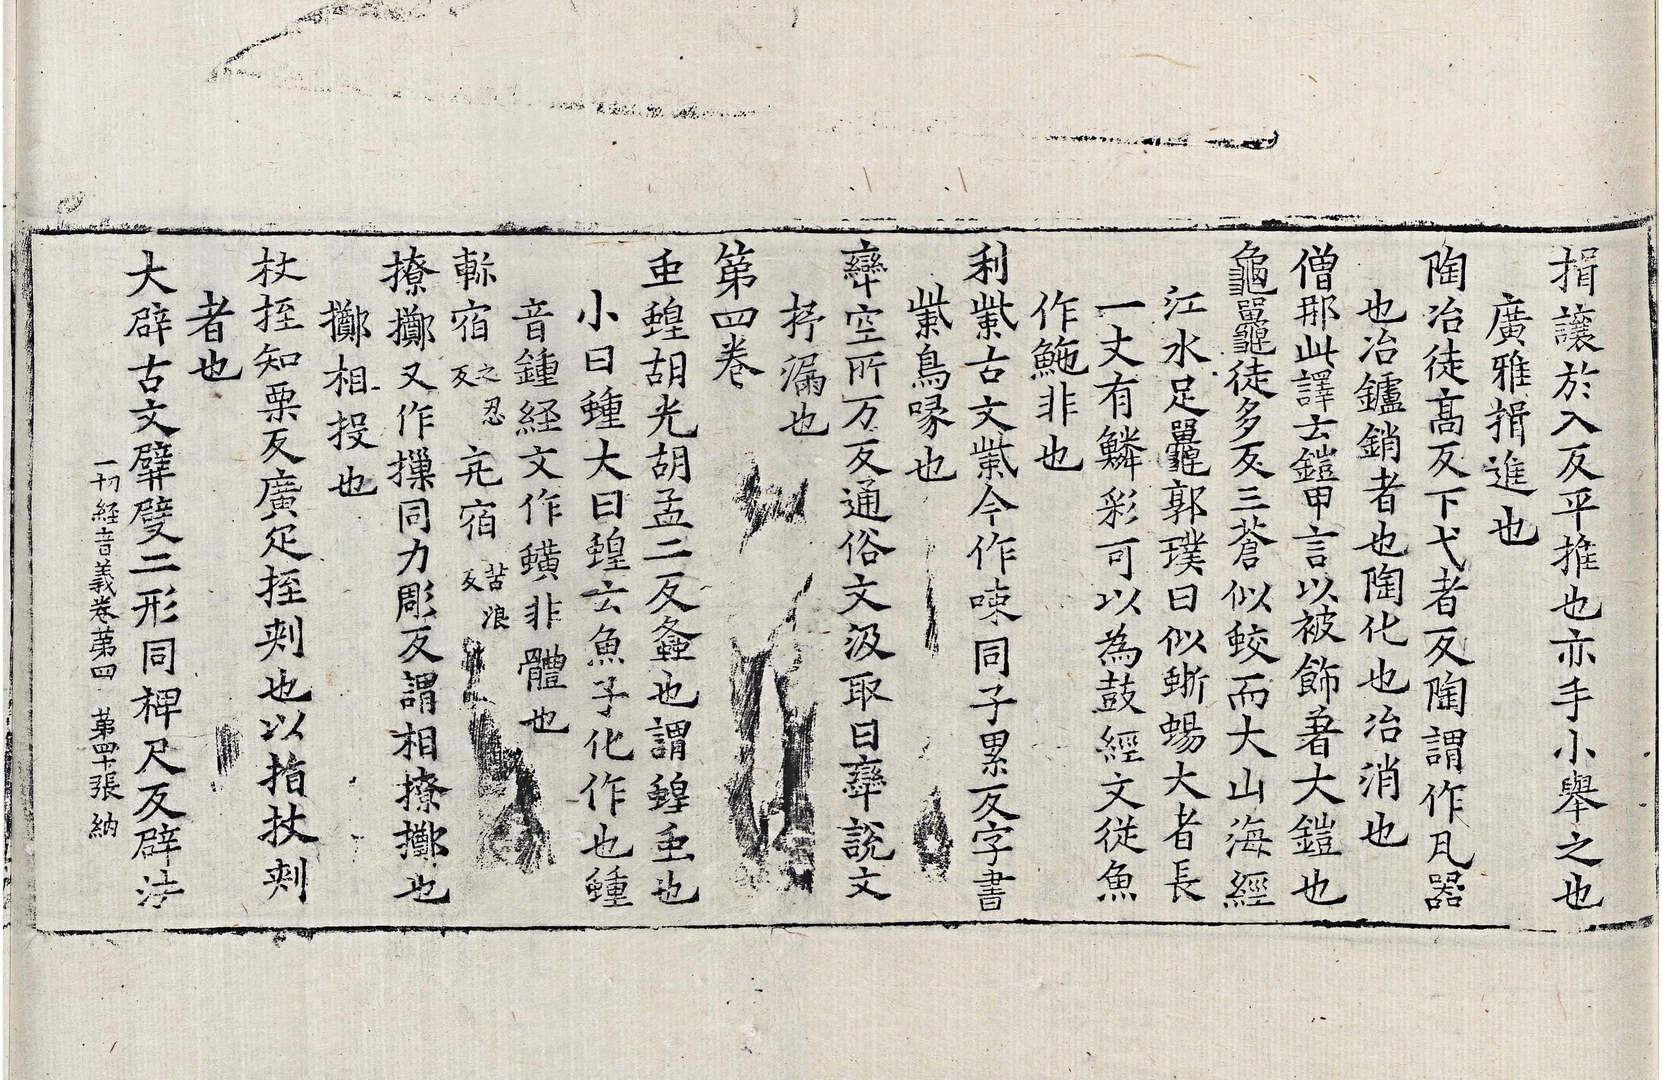 揖讓於入反平推也亦手小舉之也
廣雅揖進也
陶冶徒髙反下弋者反陶謂作凡器
也冶鑪銷者也陶化也冶消也
僧那此譯云鎧甲言以被飾著大鎧也
龜鼉徒多反三蒼似蛟而大山海經
江水足鼉郭璞曰似蜥蜴大者長
一丈有鱗彩可以為鼓經文從魚
作鮑非也
利紫古文紫今作㖨同子累反字書
紫鳥喙也
㪻空所万反通俗文汲取曰㪻說文
抒漏也
第四卷
䖝蝗胡光胡孟二反螽也謂蝗䖝也
小曰蝩大曰蝗云魚子化作也蝩
音鍾経文作蟥非體也
軫宿之忍反亢宿苦浪反
撩擲又作摷同力彫反謂相撩擲也
擲相投也
杖挃知栗反廣疋挃刾也以指杖刾
者也
大辟古文䢃㢸二形同稗尺反辟法
一切経音義卷第四 第四十張 納